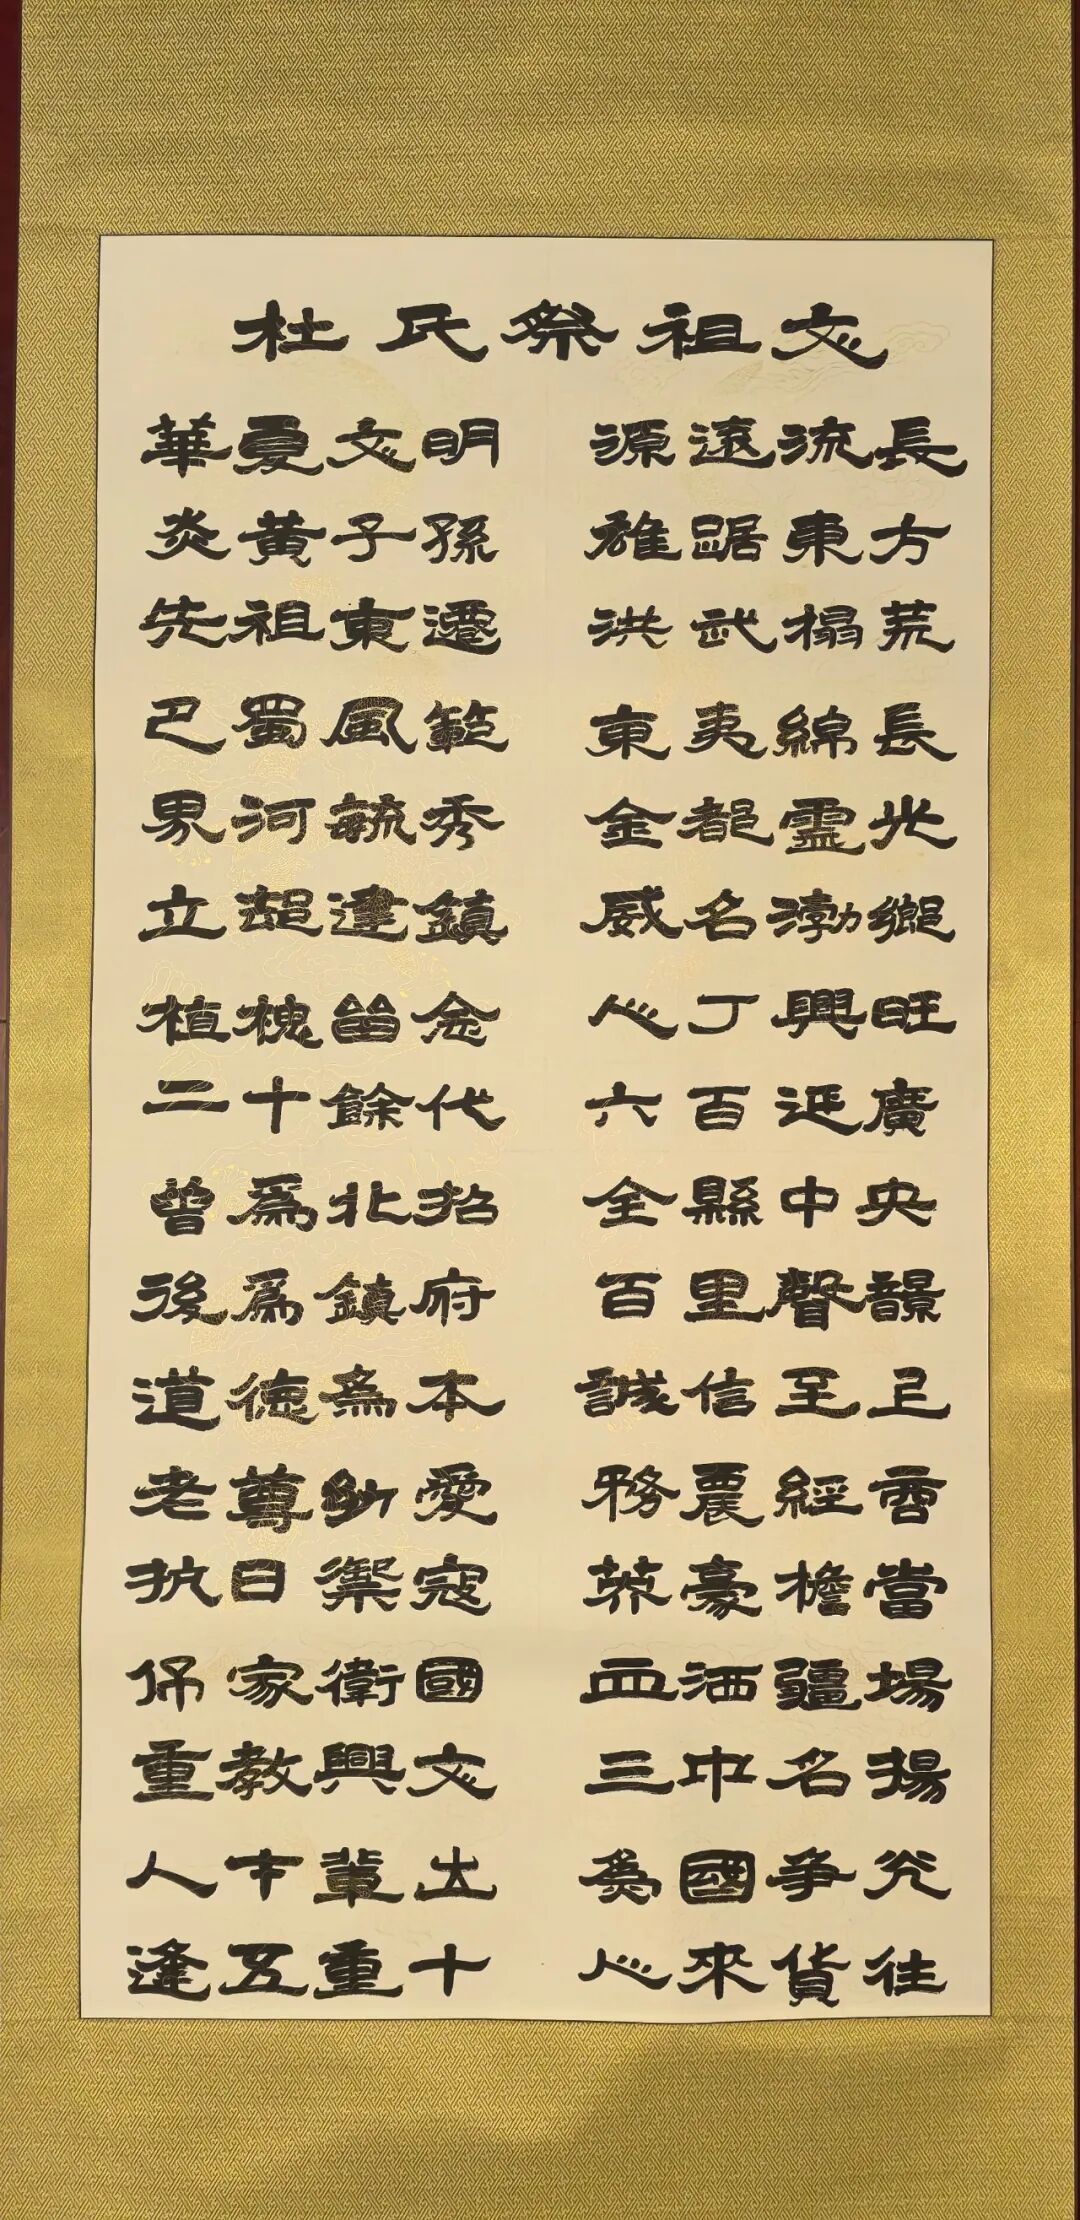 杜氏祭祖文
華夏文明 源遠流長
炎黃子孫 雄踞東方
先祖東遷 洪武榻荒
巴蜀風範 東夷綿長
界河毓秀 金都靈光
立邨建鎮 威名渤鄉
植槐留念 人丁興旺
二十餘代 六百延廣
曾為北招 全縣中央
後為鎮府 百里聲韻
道德為本 誠信至上
老尊幼愛 務農經商
抗日禦寇 英豪擔當
保家衛國 血洒疆場
重教興文 三中名揚
人才輩出 為國爭光
逢五重十 人來貨往